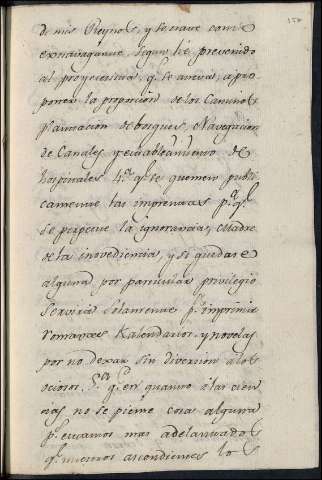 de mis Reynos, y se trate como
extravagante segun lo prevenido
al proyectista q.e se atreva a pro
poner la proporcion de los Caminos
plantacion de bosques, Navegacion
de Canales y establecimiento de
hospitales 4.to q.e se quemen publi
camente las imprentas p.a q.e
se perpetue la ignorancia, Madre
de la inovediencia, y si quidase
alguna por particular privilegio
servirá solamente p.a imprimir
romances Kalendarios, y novelas
por no dexar sin diversion a los
ociosos, 5.a q.e en quanto a las cien
cias no se pieme cosa alguna
p.s estamos mas adelantados
q.e nuestros ascendientes los